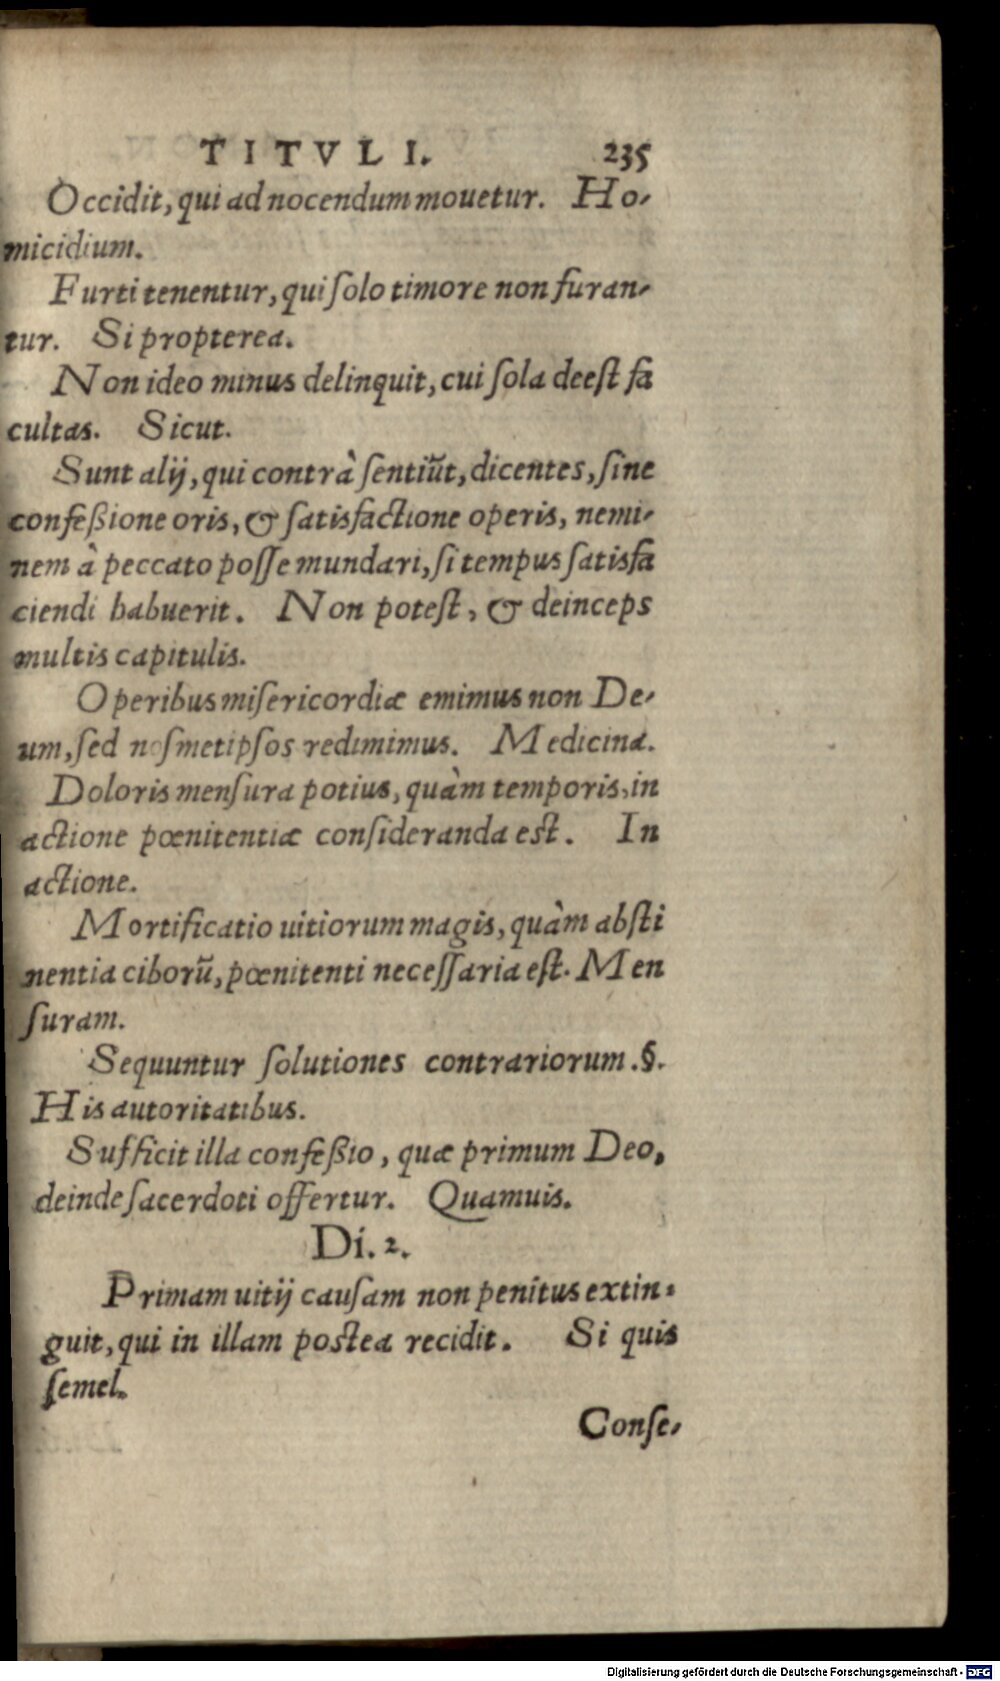 TITVLI. 235
Occidit, qui ad nocendum mouetur. Ho-
micidium.
Furti tenentur, qui ſolo timore non furan-
tur. Si propterea.
Non ideo minus delinquit, cui ſola deeſt fa
cultas. Sicut.
Sunt alij, qui contrà ſentiūt, dicentes, ſine
confeßione oris, & ſatisfactione operis, nemi-
nem à peccato poſſe mundari, ſi tempus ſatisfa
ciendi habuerit. Non poteſt, & deinceps
multis capitulis.
Operibus miſericordiæ emimus non De-
um, ſed noſmetipſos redimimus. Medicina.
Doloris menſura potius, quàm temporis, in
actione pœnitentiæ conſideranda eſt. In
actione.
Mortificatio uitiorum magis, quàm abſti
nentia ciborū, pœnitenti neceſſaria eſt. Men
ſuram.
Sequuntur ſolutiones contrariorum. §.
His autoritatibus.
Sufficit illa confeßio, quæ primum Deo,
deinde ſacerdoti offertur. Quamuis.
Di. 2.
Primam uitij cauſam non penitus extin-
guit, qui in illam poſtea recidit. Si quis
ſemel.
Conſe-
Digitalisierung gefördert durch die Deutsche Forschungsgemeinschaft - DFG